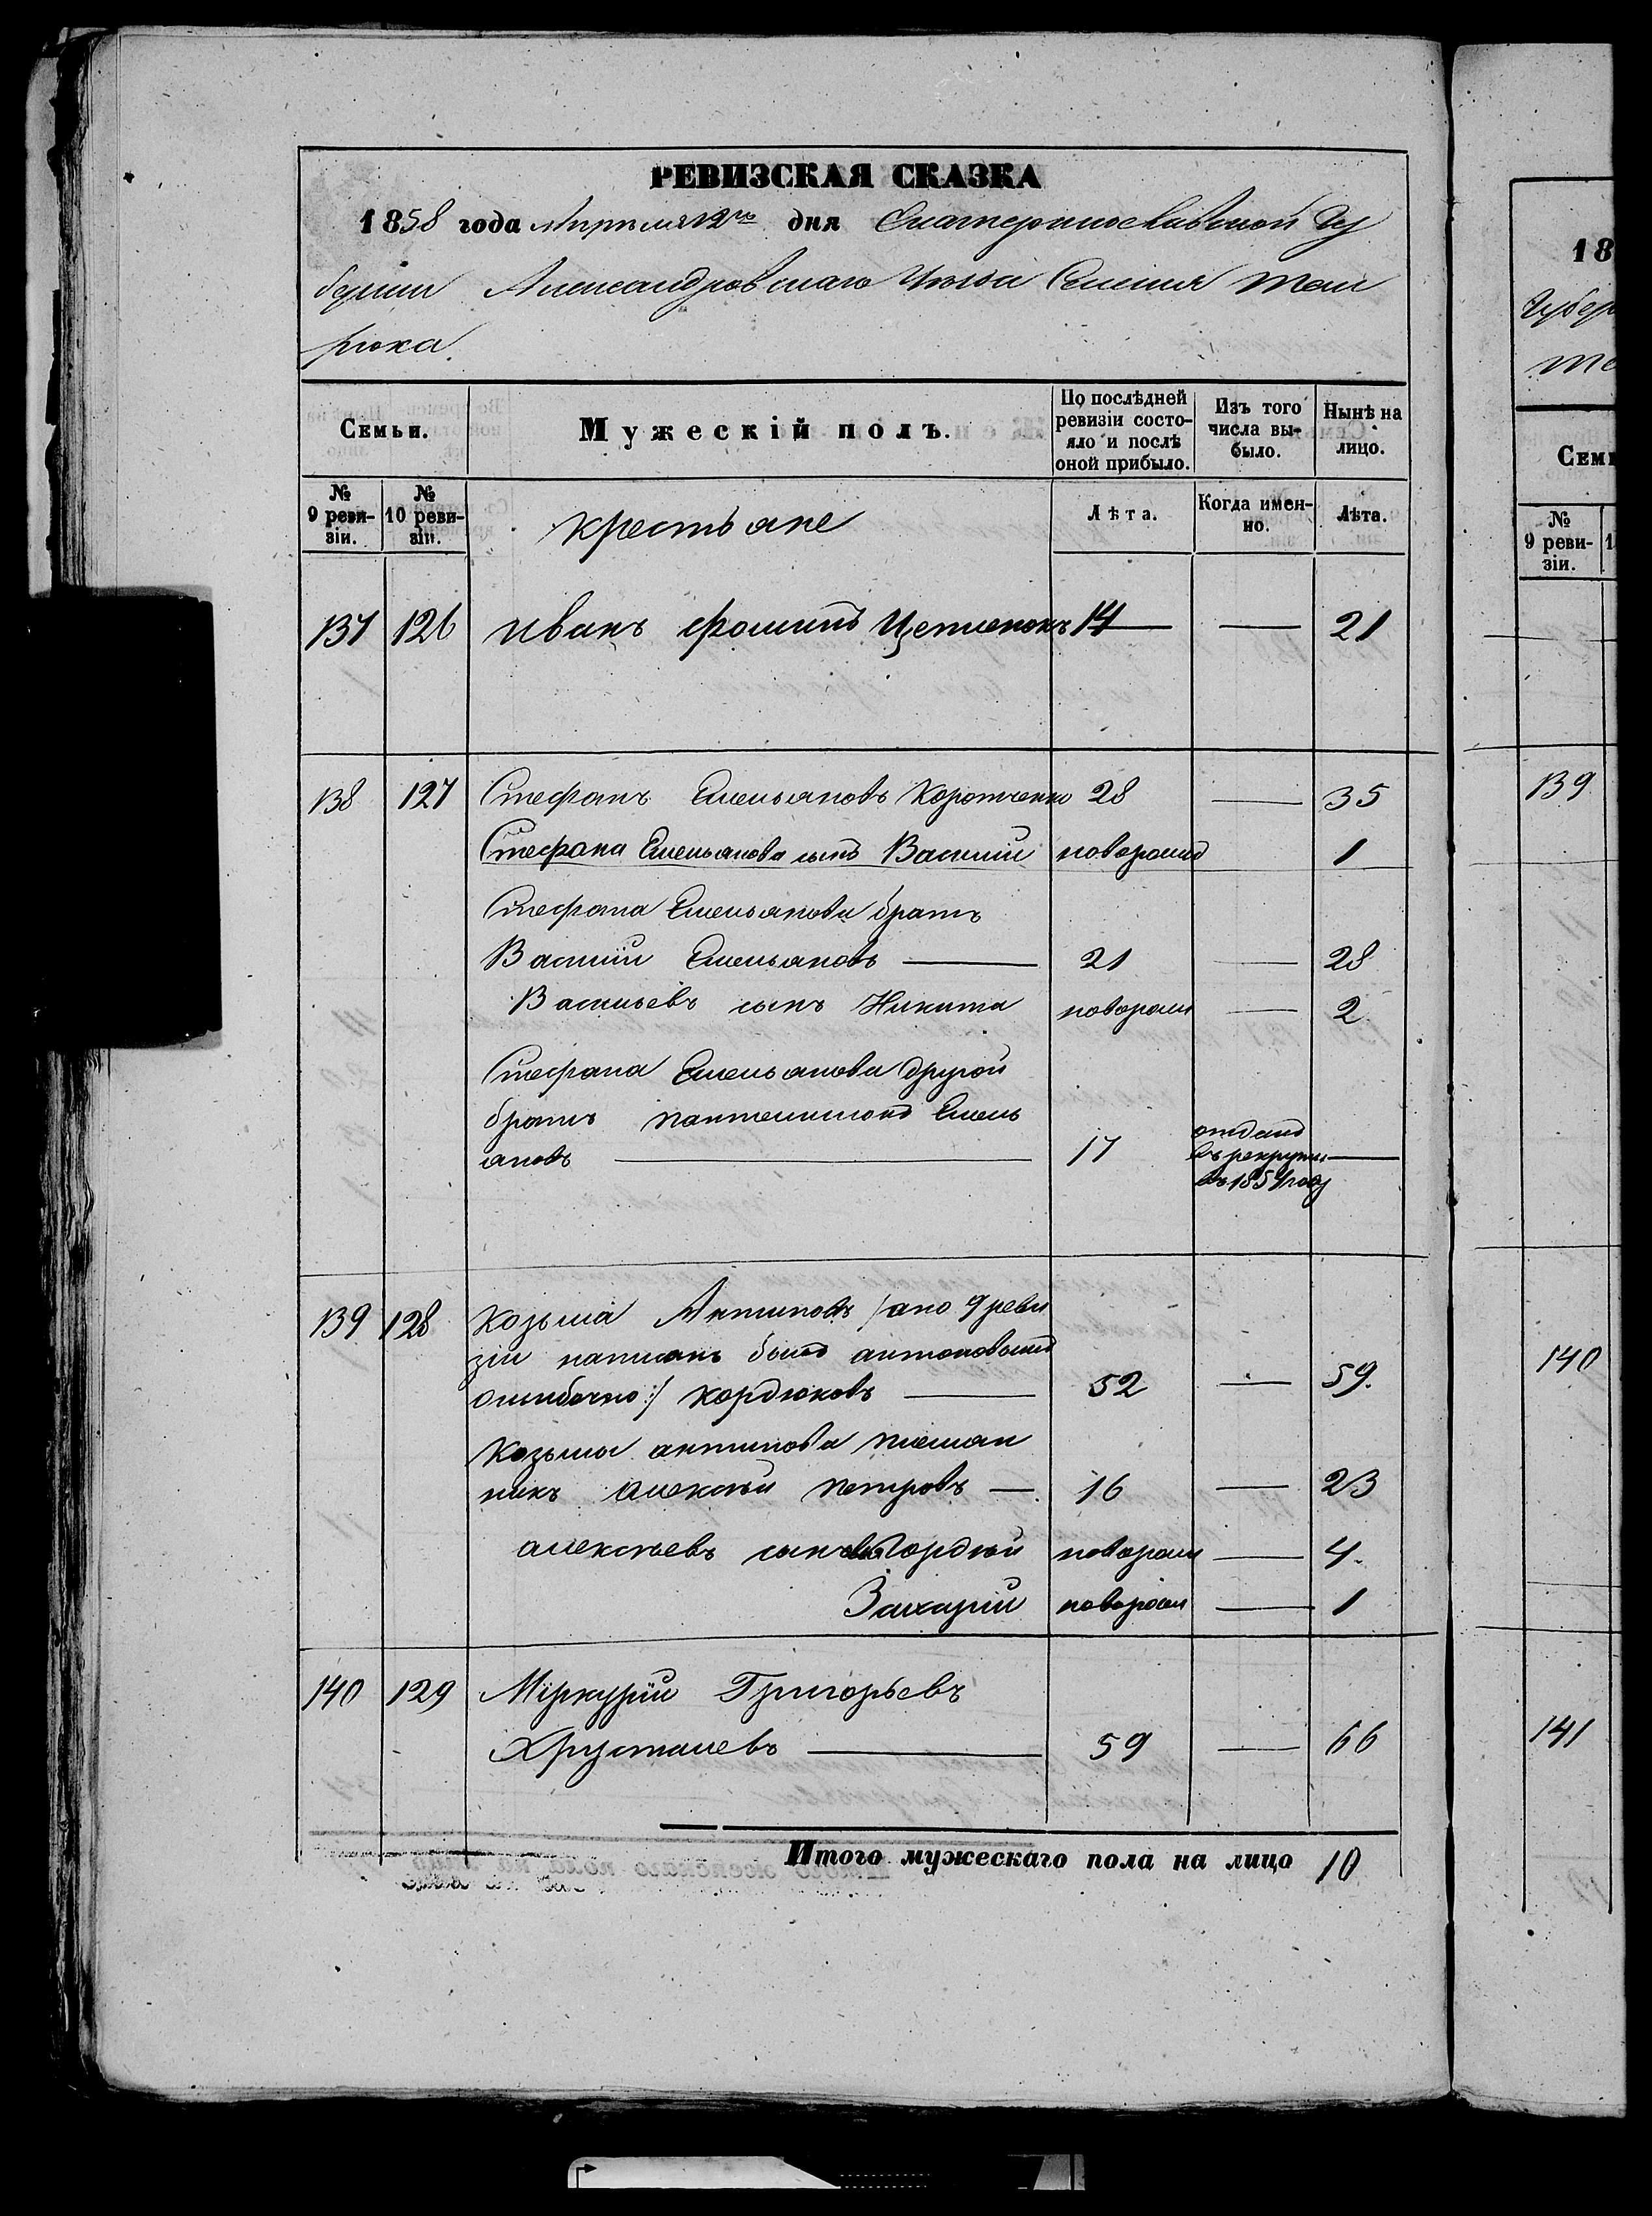 РЕВИЗСКАЯ СКАЗКА
1858 года Апреля 12го дня Екатеринославской Гу
берніи Александровскаго Уезда Селенія Тем
рюка.
Семьи.
Мужескій полъ.
По послѣдней ревизіи состояло и послѣ оной прибыло.
Изъ того числа выбыло.
Нынѣ на лицо.
№ 9 ревизіи.
№ 10 ревизіи.
крестьяне
Лѣта.
Когда именно.
Лѣта.
137 126 Иванъ Фоминъ 14 — 21
138 127 Стефанъ Емельяновъ Коротченко 28 — 35
Стефана Емельянова сынъ Василий новорожд 1
Стефана Емельянова братъ
Василий Емельяновъ — 21 — 28
Васильевъ сынъ Никита новорожд — 2
Стефана Емельянова другой
братъ Пантелимонъ Емель
яновъ — 17 отданъ въ рекруты в 1854 году —
139 128 Козьма Антиповъ /а по 9 реви
зіи написанъ былъ антоновымъ
ошибочно:/ Кордюковъ — 52 — 59.
Козьмы антипова племян
никъ Алексѣй Петровъ — 16 — 23
алексѣевъ сыновья Гордѣй новорожд — 4
Захарий новорожд — 1
140 129 Міркурій Григорьевъ
Хрусталевъ — 59 — 66
Итого мужескаго пола на лицо 10
18
Губер
Те
Семь
№ 9 ревизіи.
139
140
141